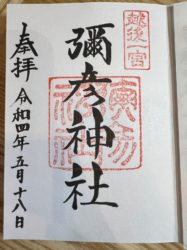 越後一宮
彌彦神社
奉拝
令和四年五月十八日